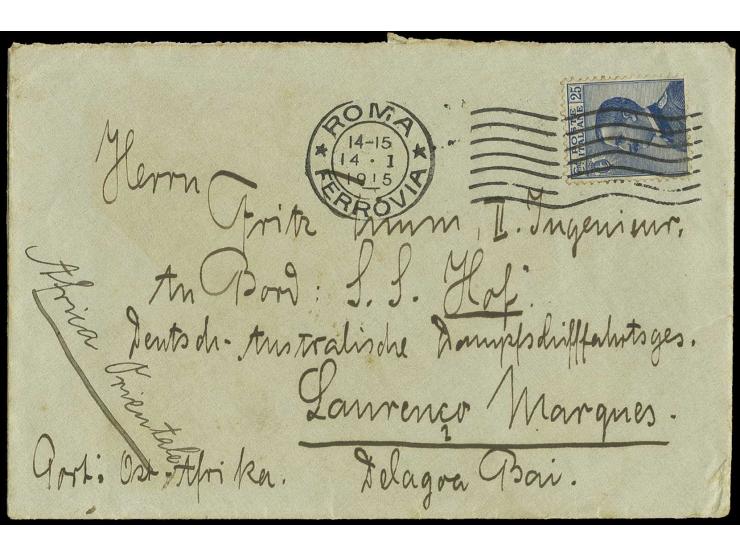 ROMA
14-15
14 · I
1915
FERROVIA
POSTE ITALIANE 25
Herrn
Fritz Mumm, II. Ingenieur.
An Bord: S. S. "Hof"
Deutsch-Australische Dampfschifffahrtsges.
Laurenço Marques.
Port: Ost-Afrika. Delagoa Bai.
Africa Orientale